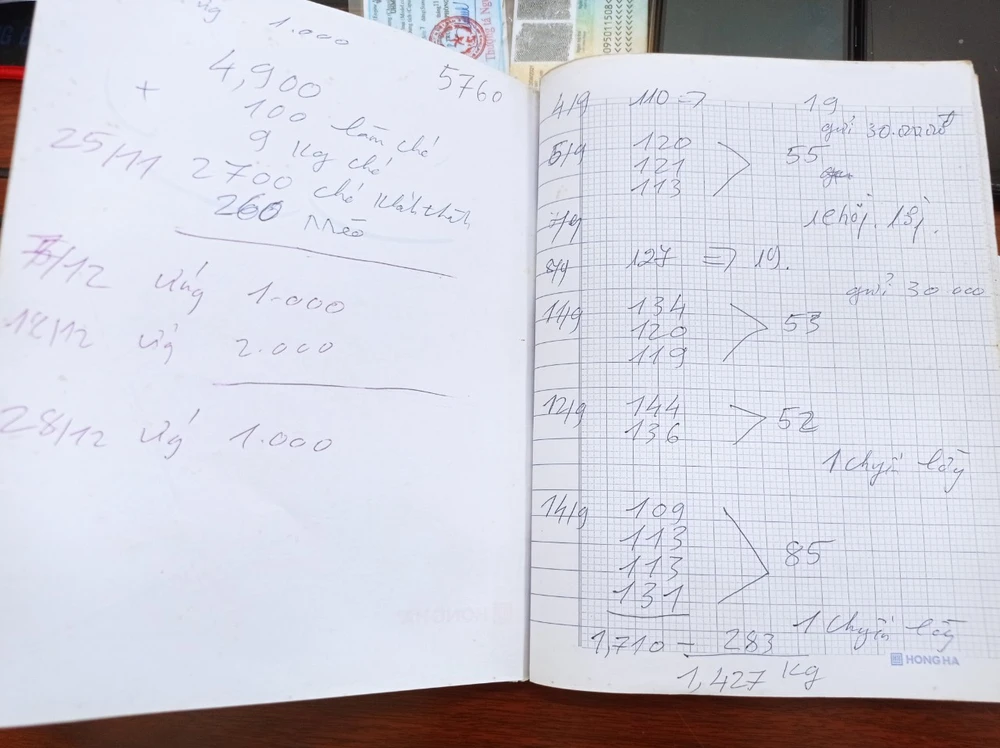 1.000
4,900
5760
+
100 làm chó
9 kg chó
25/11 2700 chó
260 Mèo
/12 ứng 1.000
18/12 ứg 2.000
28/12 ứg 1.000
4/9 110 => 19
gửi 30.000đ
5/9 120
121 55
113
7/9
8/9 127 => 19.
gửi 30 000
11/9 134
120 53
119
12/9 144
136 52
1 chyến lấy
14/9 109
113
113 85
131
1 chyến lấy
1,710 - 283
HONG HA
1,427 kg